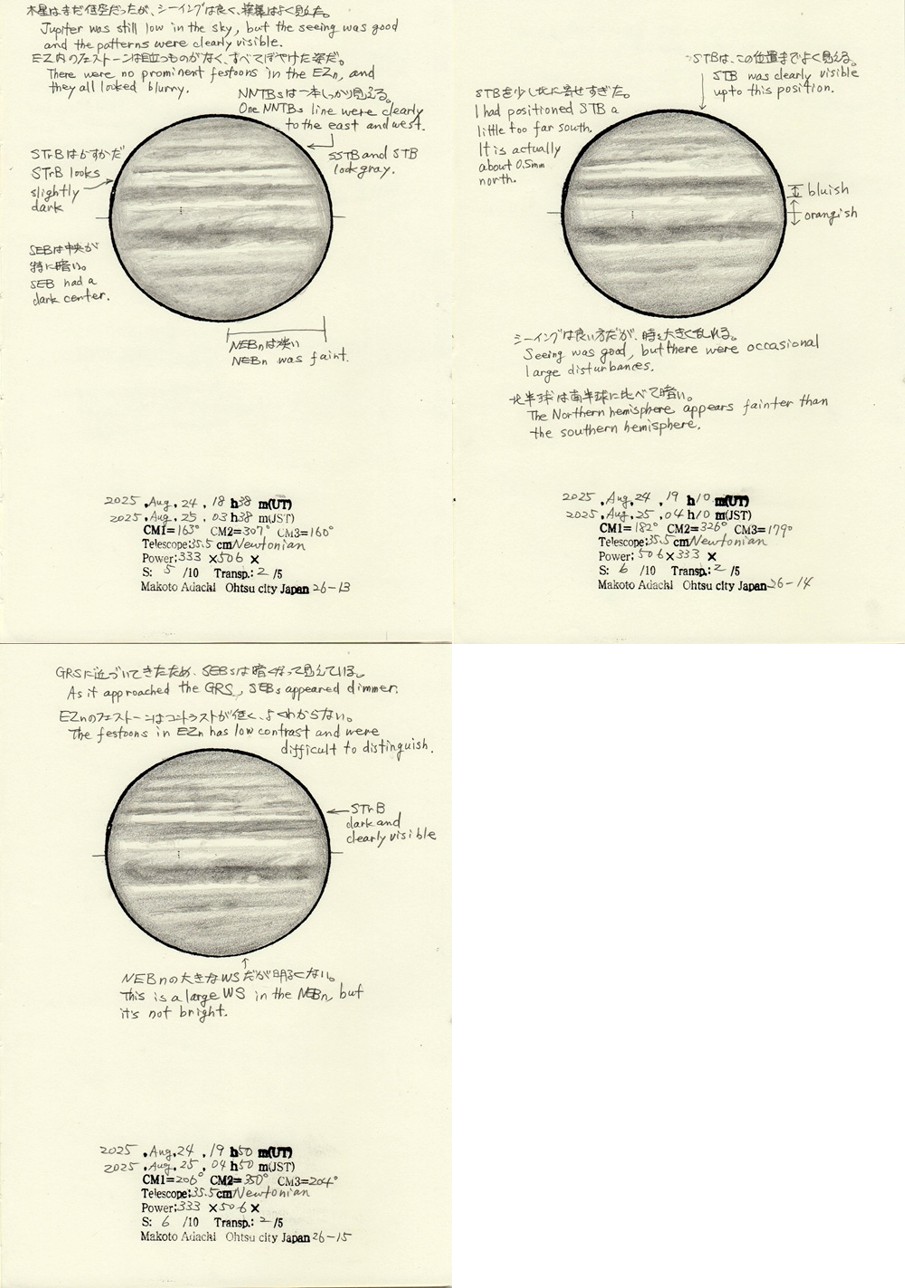 木星はまだ低空だったが、シーイングは良く、模様はよく見えた。
Jupiter was still low in the sky, but the seeing was good
and the patterns were clearly visible.
EZ内のフェストーンは目立つものがなく、すべてぼやけた姿だ。
There were no prominent festoons in the EZn, and
they all looked blurry.
NNTBsは一本しっかり見える。
One NNTBs line were clearly
to the east and west.
STrBはかすかだ
STrB looks
slightly
dark
SSTB and STB
look gray.
SEBは中央が
特に暗い。
SEB had a
dark center.
NEBnは淡い
NEBn was faint.
2025 . Aug . 24 . 18 h38 m(UT)
2025 . Aug . 25 . 03 h38 m(JST)
CM1=163° CM2=307° CM3=160°
Telescope:35.5 cm Newtonian
Power:333 ×506 ×
S: 5 /10 Transp.: 2 /5
Makoto Adachi Ohtsu city Japan 26-13
STBは、この位置までよく見える。
STB was clearly visible
upto this position.
STBを少し北に寄せすぎた。
I had positioned STB a
little too far south.
It is actually
about 0.5mm
north.
bluish
orangish
シーイングは良い方だが、時々大きく乱れる。
Seeing was good, but there were occasional
large disturbances.
北半球は南半球に比べて暗い。
The Northern hemisphere appears fainter than
the southern hemisphere.
2025 . Aug . 24 . 19 h10 m(UT)
2025 . Aug . 25 . 04 h10 m(JST)
CM1=182° CM2=326° CM3=179°
Telescope:35.5 cm Newtonian
Power:506×333 ×
S: 6 /10 Transp.: 2 /5
Makoto Adachi Ohtsu city Japan 26-14
GRSに近づいてきたため、SEBsは暗くなって見えている。
As it approached the GRS, SEBs appeared dimmer.
EZnのフェストーンはコントラストが低く、よくわからない。
The festoons in EZn has low contrast and were
difficult to distinguish.
STrB
dark and
clearly visible
NEBnの大きなWSだが明るくない。
This is a large WS in the NEBn, but
it's not bright.
2025 . Aug . 24 . 19 h50 m(UT)
2025 . Aug . 25 . 04 h50 m(JST)
CM1=206° CM2=350° CM3=204°
Telescope:35.5 cm Newtonian
Power:333 ×506 ×
S: 6 /10 Transp.: 2 /5
Makoto Adachi Ohtsu city Japan 26-15